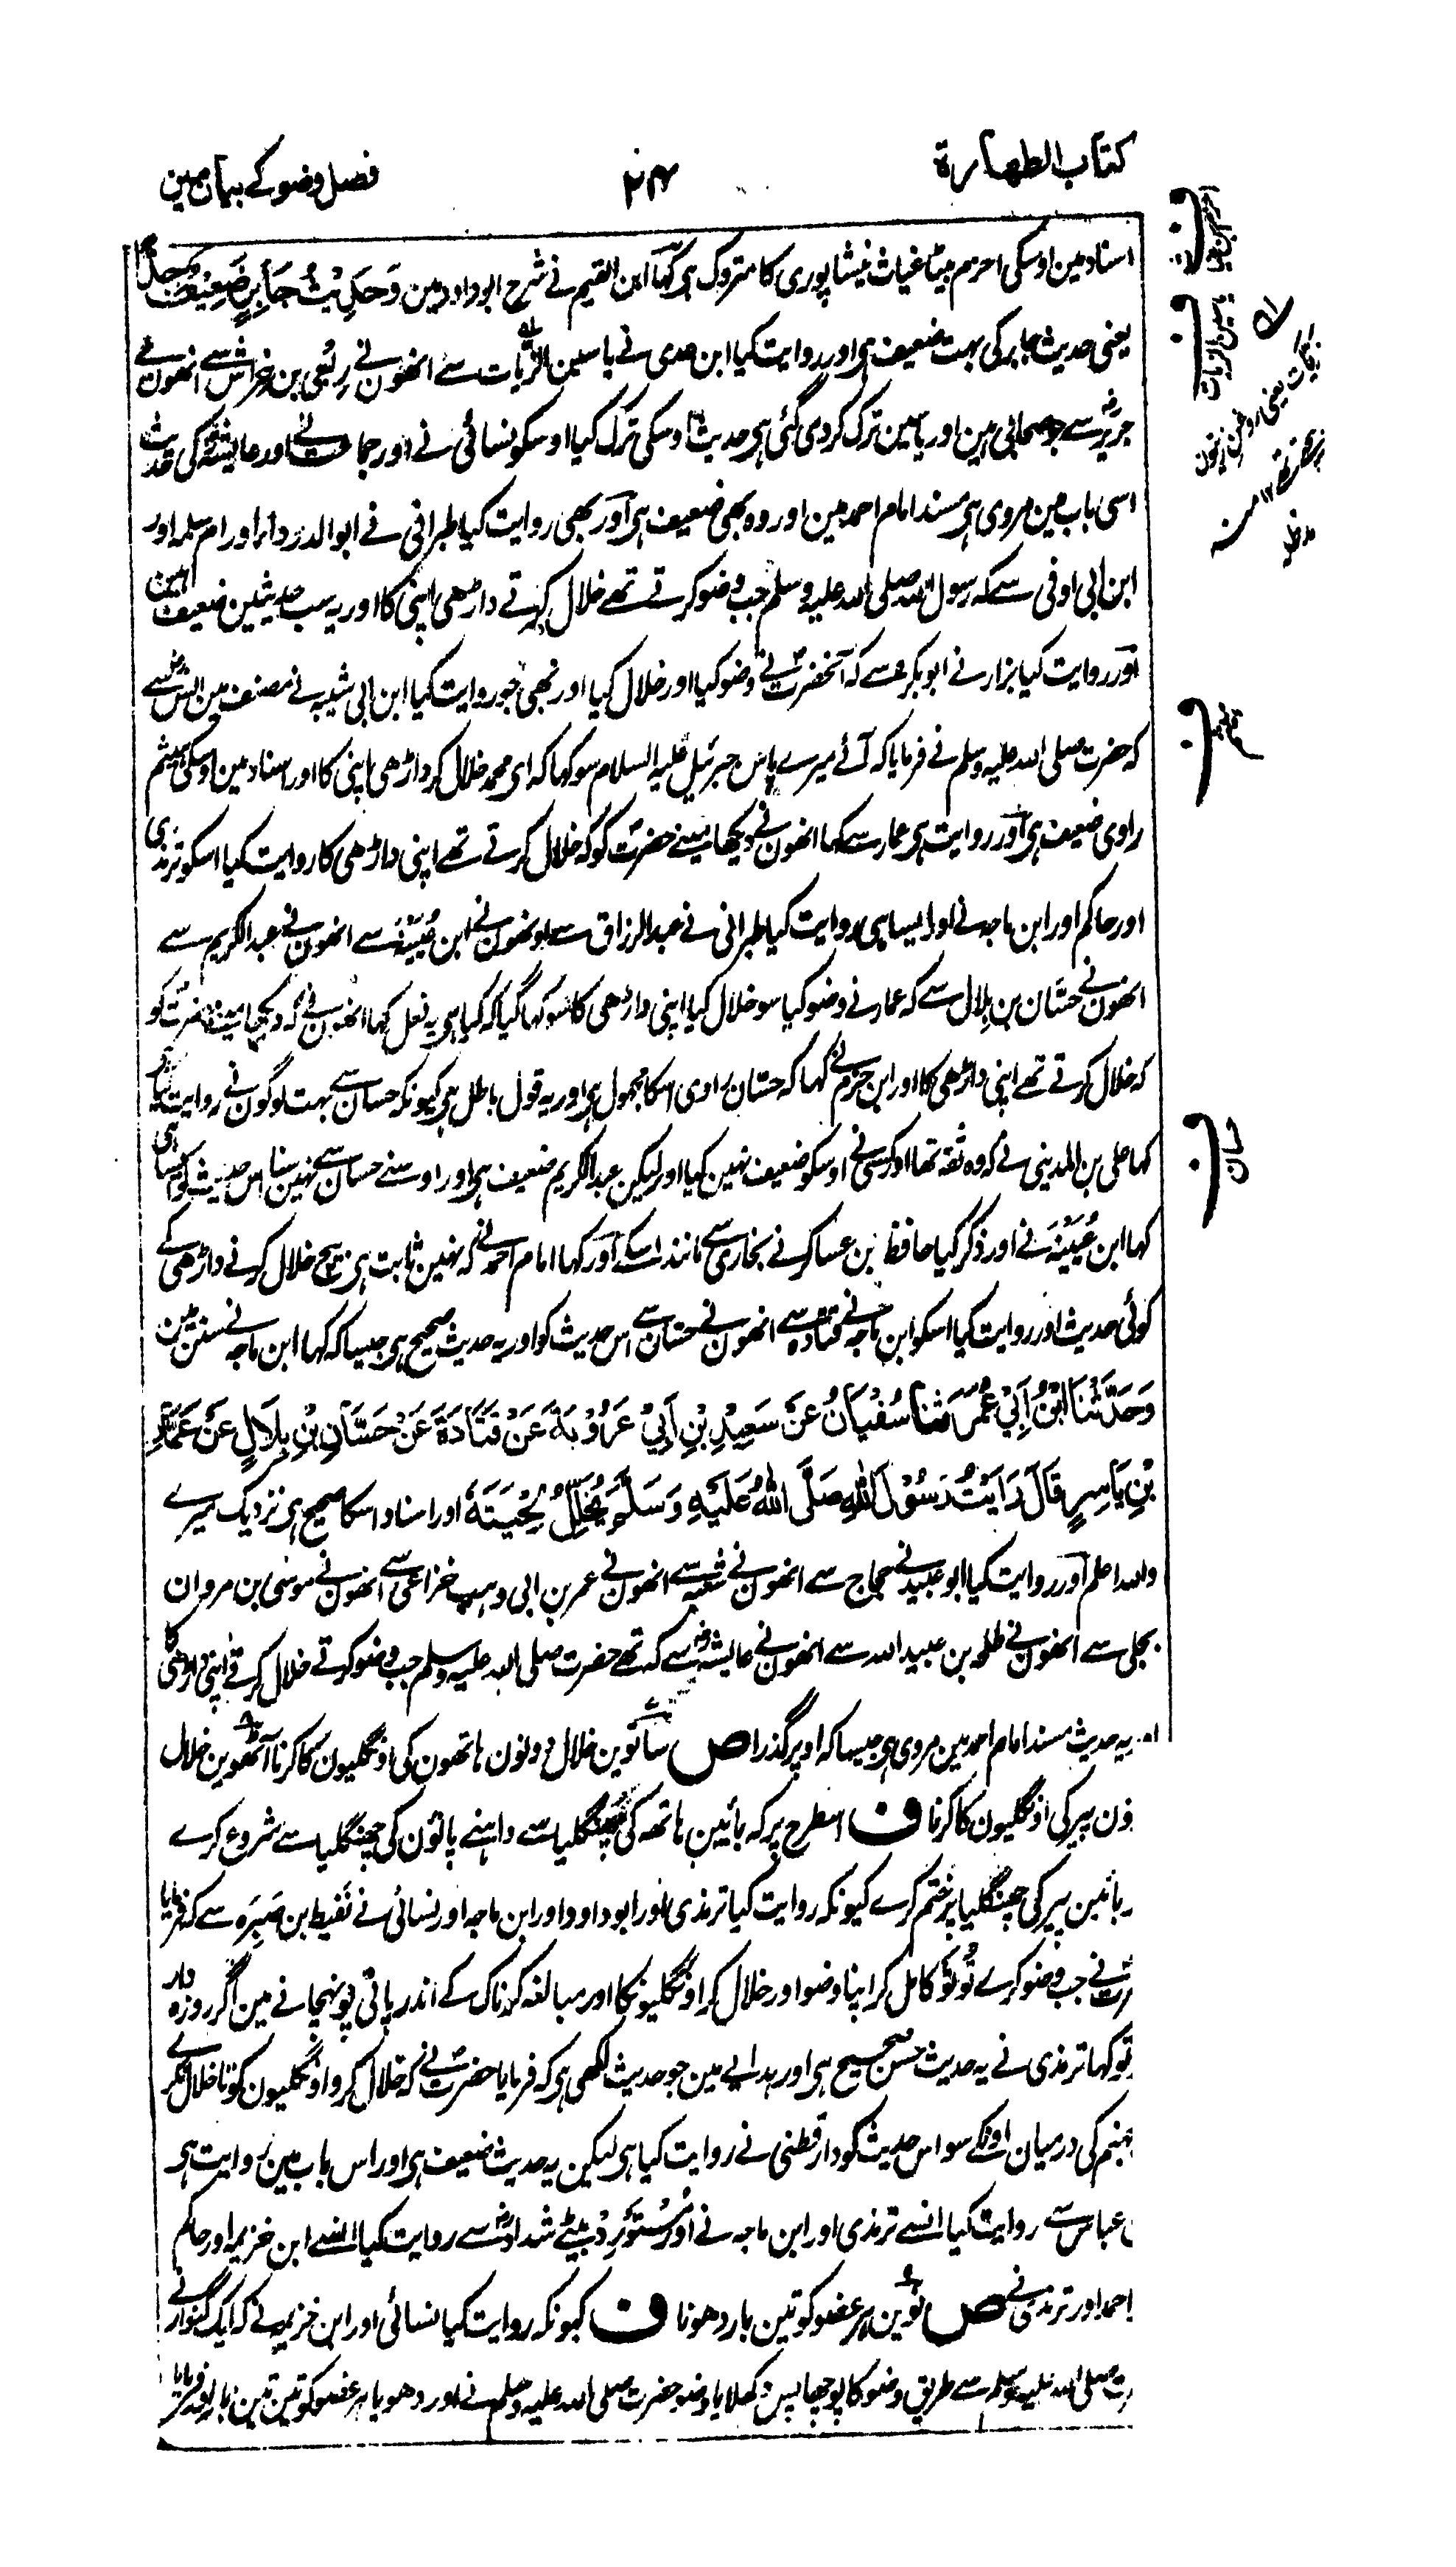 کتاب الطھارۃ
۲۴
فصل وضو کے بیان مین
اسناد مین اوسکی احرم بیٹا غیاث نیشاپوری کا متروک ہی کہا ابن القیم نے شرح ابو داود مین وَحَدِیْثُ جَابِرٍ ضَعِیْفٌ جِدًّا
یعنی حدیث جابر کی بہت ضعیف ہی اور روایت کیا ابن عدی نے یاسین الزّیات سے انھون نے رِبْعِی بن خِراش سے انھون نے
جریرؓ سے جو صحابی ہین اور یاسین ترک کردی گئی ہی حدیث اوسکی ترک کیا اوسکو نسائی نے اور جماعت نے اور عایشہؓ کی حدیث
اسی باب مین مروی ہی مسند امام احمد مین اور وہ بھی ضعیف ہی اور بھی روایت کیا طبرانی نے ابو الدرداء اور ام سلمہ اور
ابن ابی اوفی سے کہ رسول اللہ صلی اللہ علیہ وسلم جب وضو کرتے تھے خلال کرتے داڑھی اپنی کا اور یہ سب حدیثین ضعیف ہین
اور روایت کیا بزار نے ابو بکرہ سے کہ آنحضرتؐ نے وضو کیا اور خلال کیا اور بھی جو روایت کیا ابن ابی شیبہ نے مصنف مین انسؓ سے
کہ حضرت صلی اللہ علیہ وسلم نے فرمایا کہ آئے میرے پاس جبرئیل علیہ السلام سو کہا کہ ای محمد خلال کر داڑھی اپنی کا اور اسناد مین اوسکی ہیثم
راوی ضعیف ہی اور روایت ہی عمار سے کہا انھون نے دیکھا مینے حضرتؐ کو کہ خلال کرتے تھے اپنی داڑھی کا روایت کیا اسکو ترمذی
اور حاکم اور ابن ماجہ نے اور ایسا ہی روایت کیا طبرانی نے عبد الرزاق سے اونھون نے ابن عُیَیْنَہ سے انھون نے عبد الکریم سے
انھون نے حسّان بن بِلال سے کہ عمار نے وضو کیا سو خلال کیا اپنی داڑھی کا سو کہا گیا کہ کیا ہی یہ فعل کہا انھون نے کہ دیکھا مینے حضرتؐ کو
کہ خلال کرتے تھے اپنی داڑھی کا اور ابن حزم نے کہا کہ حسّان راوی اسکا مجہول ہی اور یہ قول باطل ہی کیونکہ حسان سے بہت لوگون نے روایت کیا
کہا علی بن المدینی نے کہ وہ ثقہ تھا اور کسی نے اوسکو ضعیف نہین کہا اور لیکن عبد الکریم ضعیف ہی اور اوسنے حسان سے نہین سنا اس حدیث کو ایسا ہی
کہا ابن عُیَیْنَہ نے اور ذکر کیا حافظ بن عساکر نے بخاری سے مانند اسکے اور کہا امام احمد نے کہ نہین ثابت ہی بیچ خلال کرنے داڑھی کے
کوئی حدیث اور روایت کیا اسکو ابن ماجہ نے قتادہ سے انھون نے حسّان سے اس حدیث کو اور یہ حدیث صحیح ہی جیسا کہ کہا ابن ماجہ نے سنن مین
وَحَدَّثَنَا ابْنُ اَبِیْ عُمَرَ ثَنَا سُفْیَانُ عَنْ سَعِیْدِ بْنِ اَبِیْ عَرُوْبَةَ عَنْ قَتَادَةَ عَنْ حَسَّانِ بْنِ بِلَالٍ عَنْ عَمَّارِ
بْنِ یَاسِرٍ قَالَ رَاَیْتُ رَسُوْلَ اللّٰهِ صَلَّی اللّٰهُ عَلَیْهِ وَسَلَّمَ یُخَلِّلُ لِحْیَتَهٗ اور اسناد اسکا صحیح ہی نزدیک میرے
واللہ اعلم اور روایت کیا ابو عبید نے حجاج سے انھون نے شعبہ سے انھون نے عمر بن ابی وہب خزاعی سے انھون نے موسٰی بن مروان
بجلی سے انھون نے طلحہ بن عبید اللہ سے انھون نے عایشہؓ سے کہ تھے حضرت صلی اللہ علیہ وسلم جب وضو کرتے خلال کرتے اپنی داڑھی کا
اور یہ حدیث مسند امام احمد مین مروی ہی جیسا کہ اوپر گذرا ص ساتوین خلال دونون ہاتھون کی اونگلیون کا کرنا آٹھوین خلال
ون پیر کی اونگلیون کا کرنا ف اسطرح پر کہ بائین ہاتھ کی چھنگلیا سے داہنے پانون کی چھنگلیا سے شروع کرے
ر بائین پیر کی چھنگلیا پر ختم کرے کیونکہ روایت کیا ترمذی اور ابو داود اور ابن ماجہ اور نسائی نے لَقیط بن صَبِرَہ سے کہ فرمایا
رتؐ نے جب وضو کرے تُو تو کامل کر اپنا وضو اور خلال کر اونگلیونکا اور مبالغہ کر ناک کے اندر پانی پونہچانے مین اگر روزہ دار
ہو کہا ترمذی نے یہ حدیث حسن صحیح ہی اور ہدایے مین جو حدیث لکھی ہی کہ فرمایا حضرتؐ نے کہ خلال کرو اونگلیون کو تا خلال نکرے
جہنم کی درمیان اونکے سو اس حدیث کو دارقطنی نے روایت کیا ہی لیکن یہ حدیث ضعیف ہی اور اس باب مین روایت ہی
ن عباس سے روایت کیا اسے ترمذی اور ابن ماجہ نے اور مُسْتَوْرِد بیٹے شداد سے روایت کیا اسے ابن خزیمہ اور حاکم
احمد اور ترمذی نے ص نوین ہر عضو کو تین بار دھونا ف کیونکہ روایت کیا نسائی اور ابن خزیمہ نے کہ ایک گنوار نے
رت صلی اللہ علیہ وسلم سے طریق وضو کا پوچھا پس دکھلایا وضو حضرت صلی اللہ علیہ وسلم نے اور دھویا ہر عضو کو تین تین بار پھر فرمایا
ف
ف یاسین الزیات
زیات یعنی روغن زیتون
ف ہیثم
ف حسان